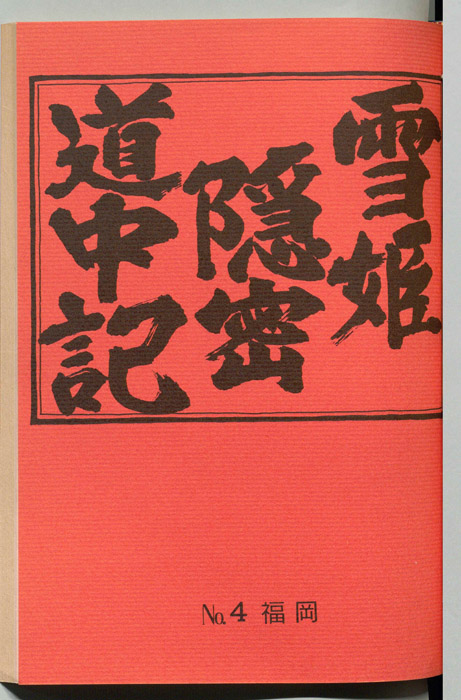 雪姫
隠密
道中記
No.4 福岡